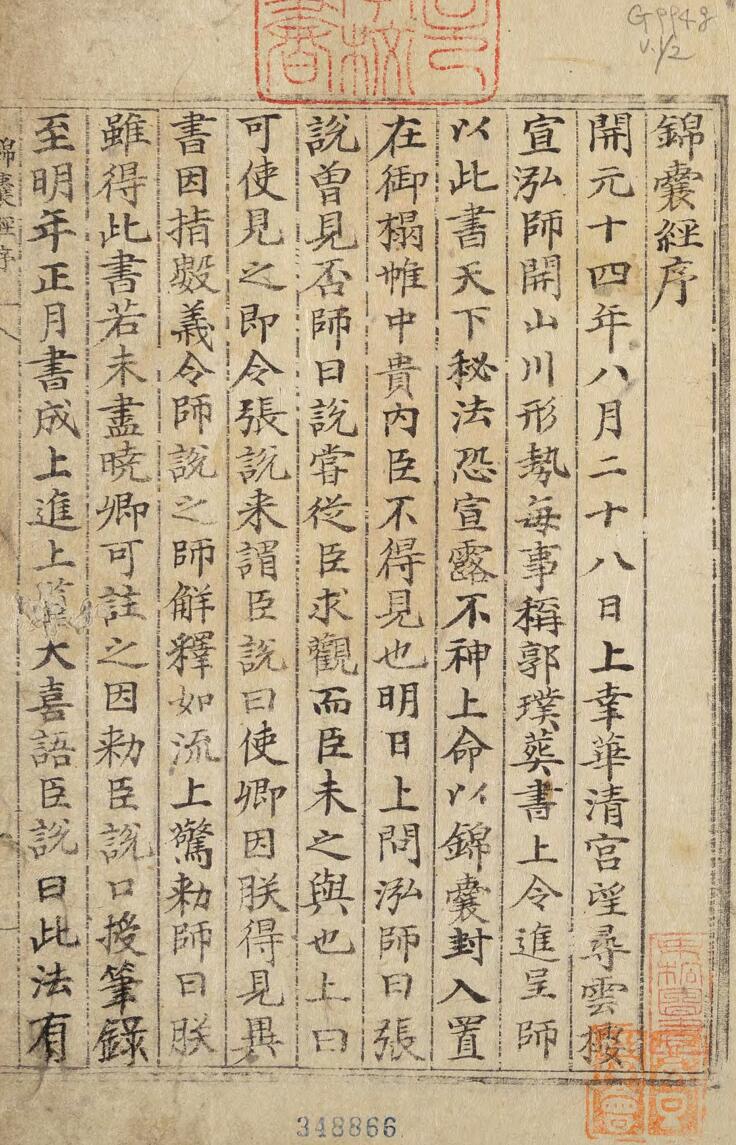 錦囊經序
開元十四年八月二十八日上幸華清宮望尋雲
宣泓師開山川形勢每事稱郭璞葬書上令進呈師
以此書天下秘法恐宣露不神上命以錦囊封入置
在御榻帷中貴內臣不得見也明日上問泓師曰張
說曾見否師曰說嘗從臣求觀而臣未之與也上曰
可使見之即令張說来謂臣說曰使卿因朕得見異
書因指數義令師說之師觧釋如流上驚勑師曰朕
雖得此書若未盡曉卿可註之因勑臣說口授筆錄
至明年正月書成上進上大喜語臣說曰此法有
錦囊經序
G9948
v.1/2
348866